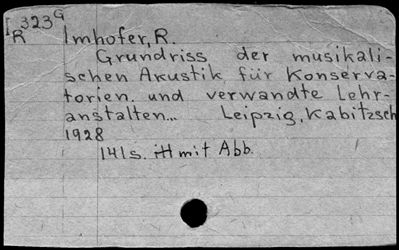 I 323 G
R Imhofer, R.
Grundriss der musikali-
schen Akustik für Konserva-
torien. und verwandte Lehr-
anstalten... Leipzig, Kabitzsch
1928
141 s. mit Abb.